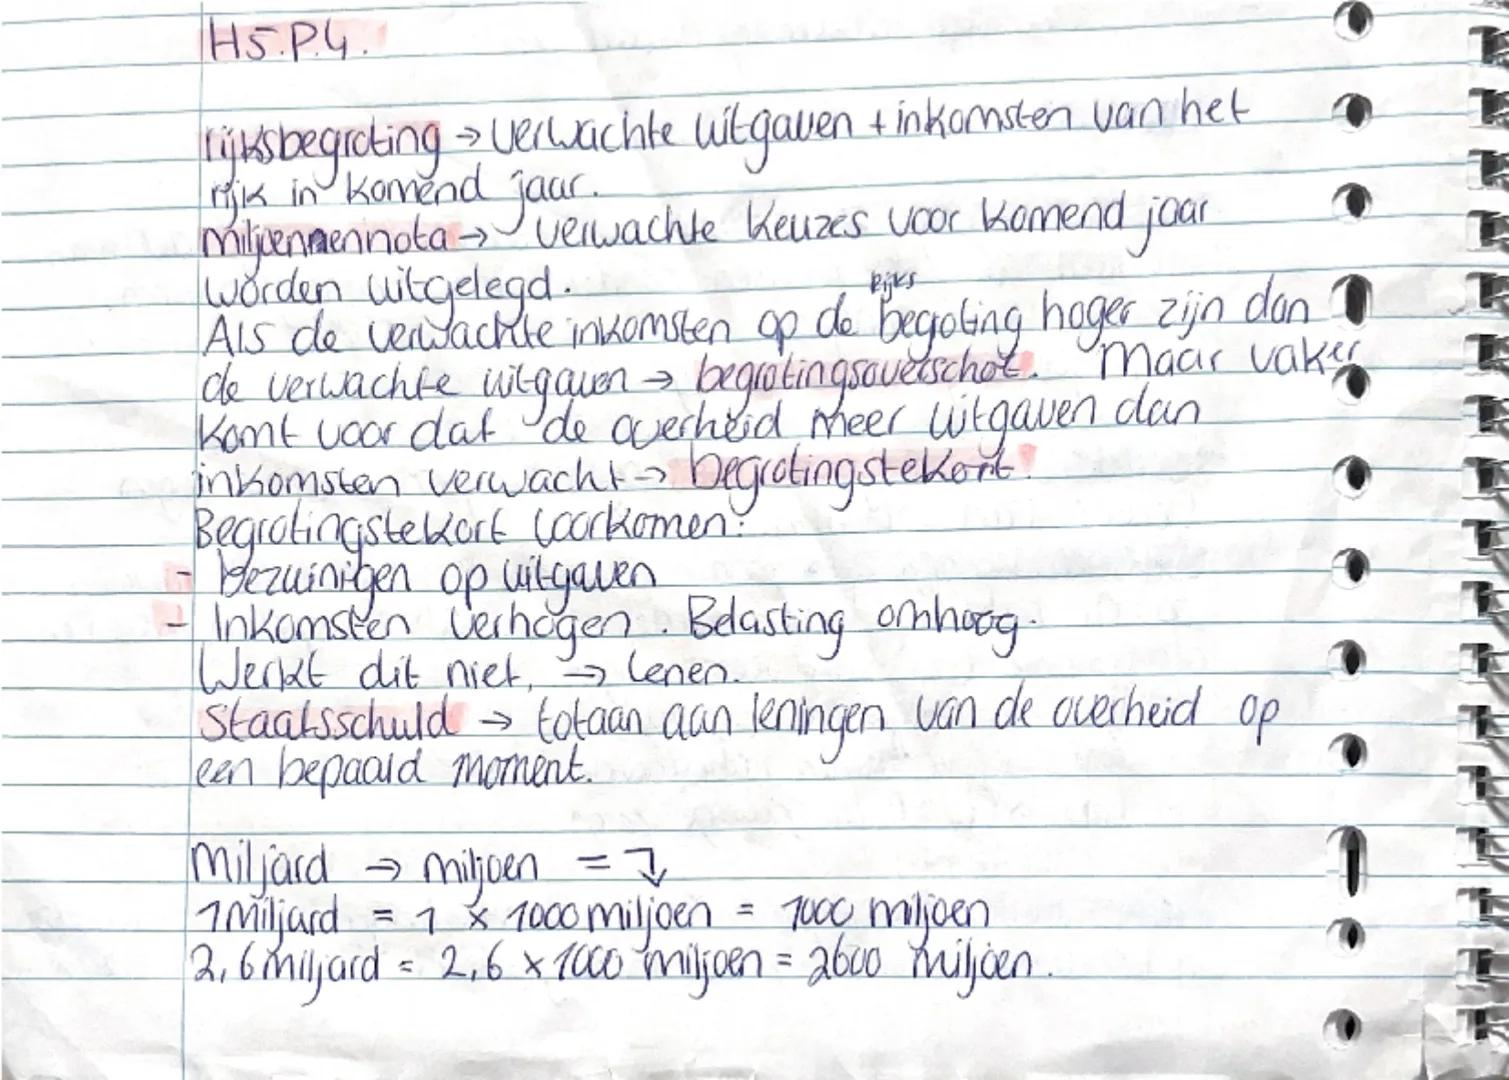 H5.P.4.
rijksbegroting → verwachte uitgaven + inkomsten van het
rijk in komend jaar.
miljoenennota → verwachte keuzes voor komend jaar
worden uitgelegd.
Als de verwachte inkomsten op de rijks begroting hoger zijn dan
de verwachte uitgaven → begrotingsoverschot. Maar vaker
komt voor dat de overheid meer uitgaven dan
inkomsten verwacht → begrotingstekort.
Begrotingstekort voorkomen:
- bezuinigen op uitgaven
- Inkomsten verhogen. Belasting omhoog.
Werkt dit niet, → lenen.
Staatsschuld → totaan aan leningen van de overheid op
een bepaald moment.
Miljard → miljoen = ↴
1 Miljard = 1 x 1000 miljoen = 1000 miljoen
2,6 miljard = 2,6 x 1000 miljoen = 2600 miljoen.